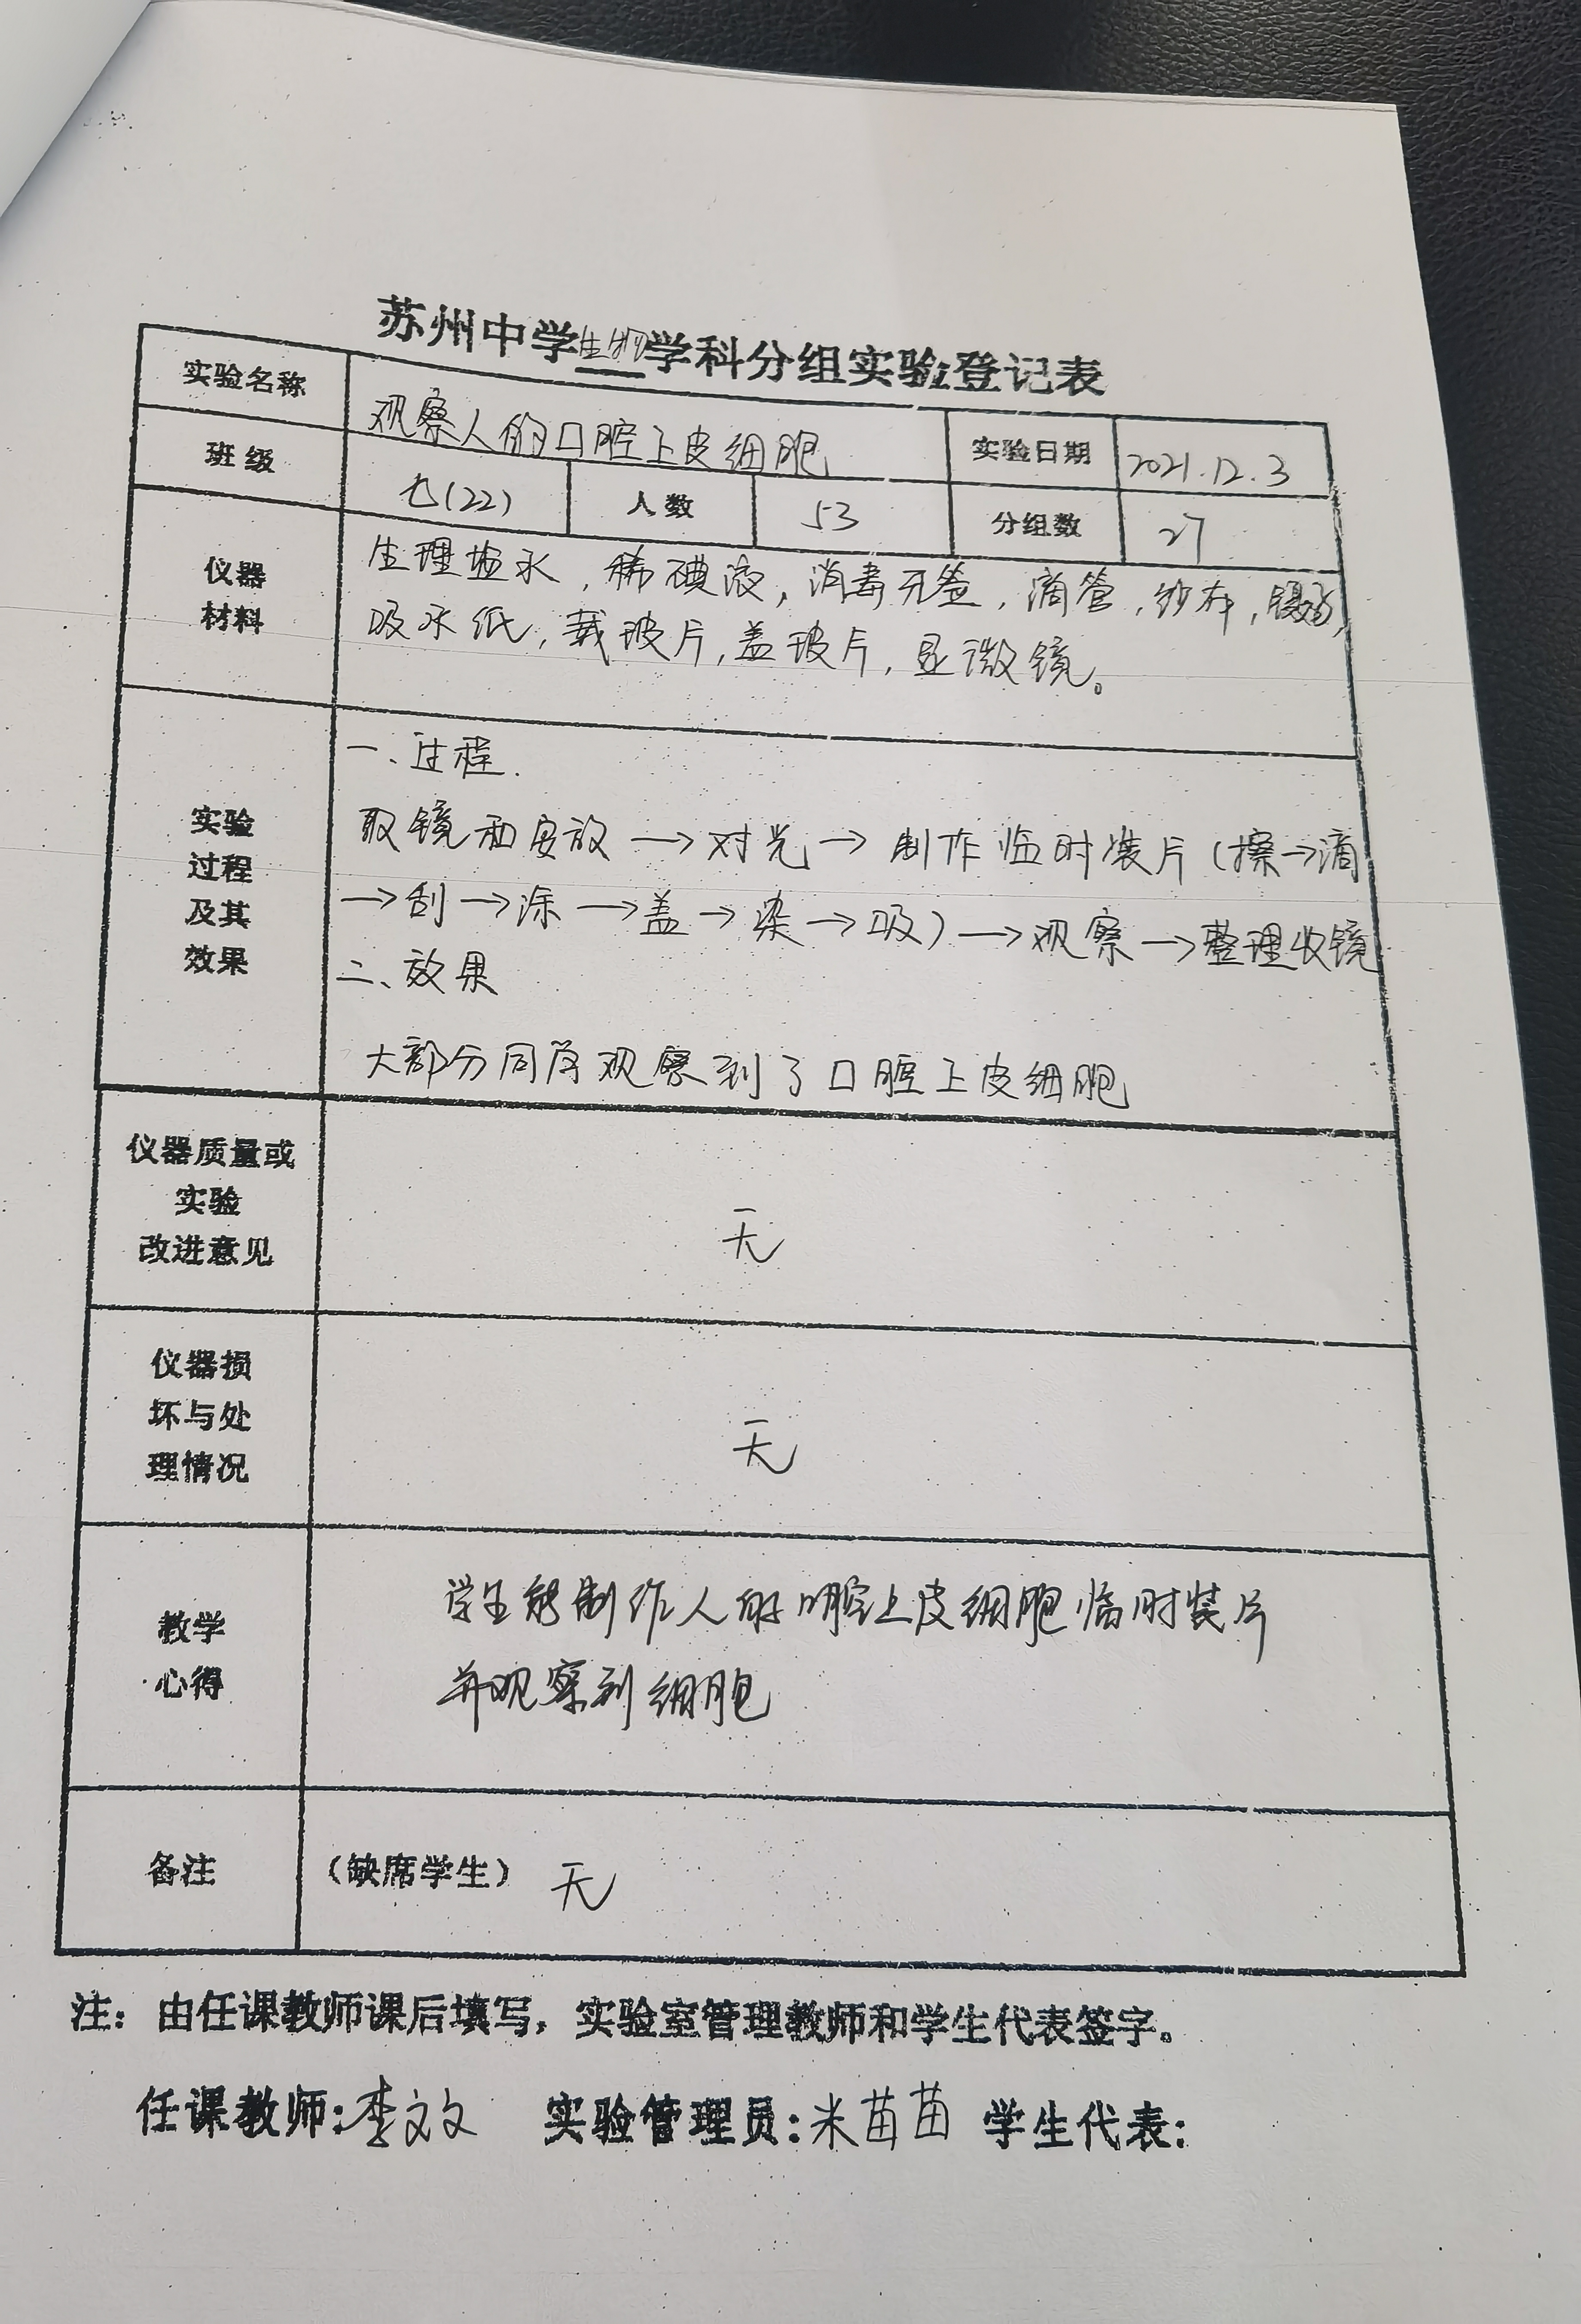 苏州中学生物学科分组实验登记表
实验名称 观察人的口腔上皮细胞 实验日期 2021.12.3
班级 七(22) 人数 53 分组数 27
仪器
材料
生理盐水，稀碘液，消毒牙签，滴管，纱布，镊子，
吸水纸，载玻片，盖玻片，显微镜。
实验
过程
及其
效果
一、过程.
取镜和安放→对光→制作临时装片（擦→滴
→刮→涂→盖→染→吸）→观察→整理收镜
二、效果
大部分同学观察到了口腔上皮细胞
仪器质量或
实验
改进意见
无
仪器损
坏与处
理情况
无
教学
心得
学生能制作人的口腔上皮细胞临时装片
并观察到细胞
备注 （缺席学生） 无
注：由任课教师课后填写，实验室管理教师和学生代表签字。
任课教师:李文文 实验管理员:米苗苗 学生代表: